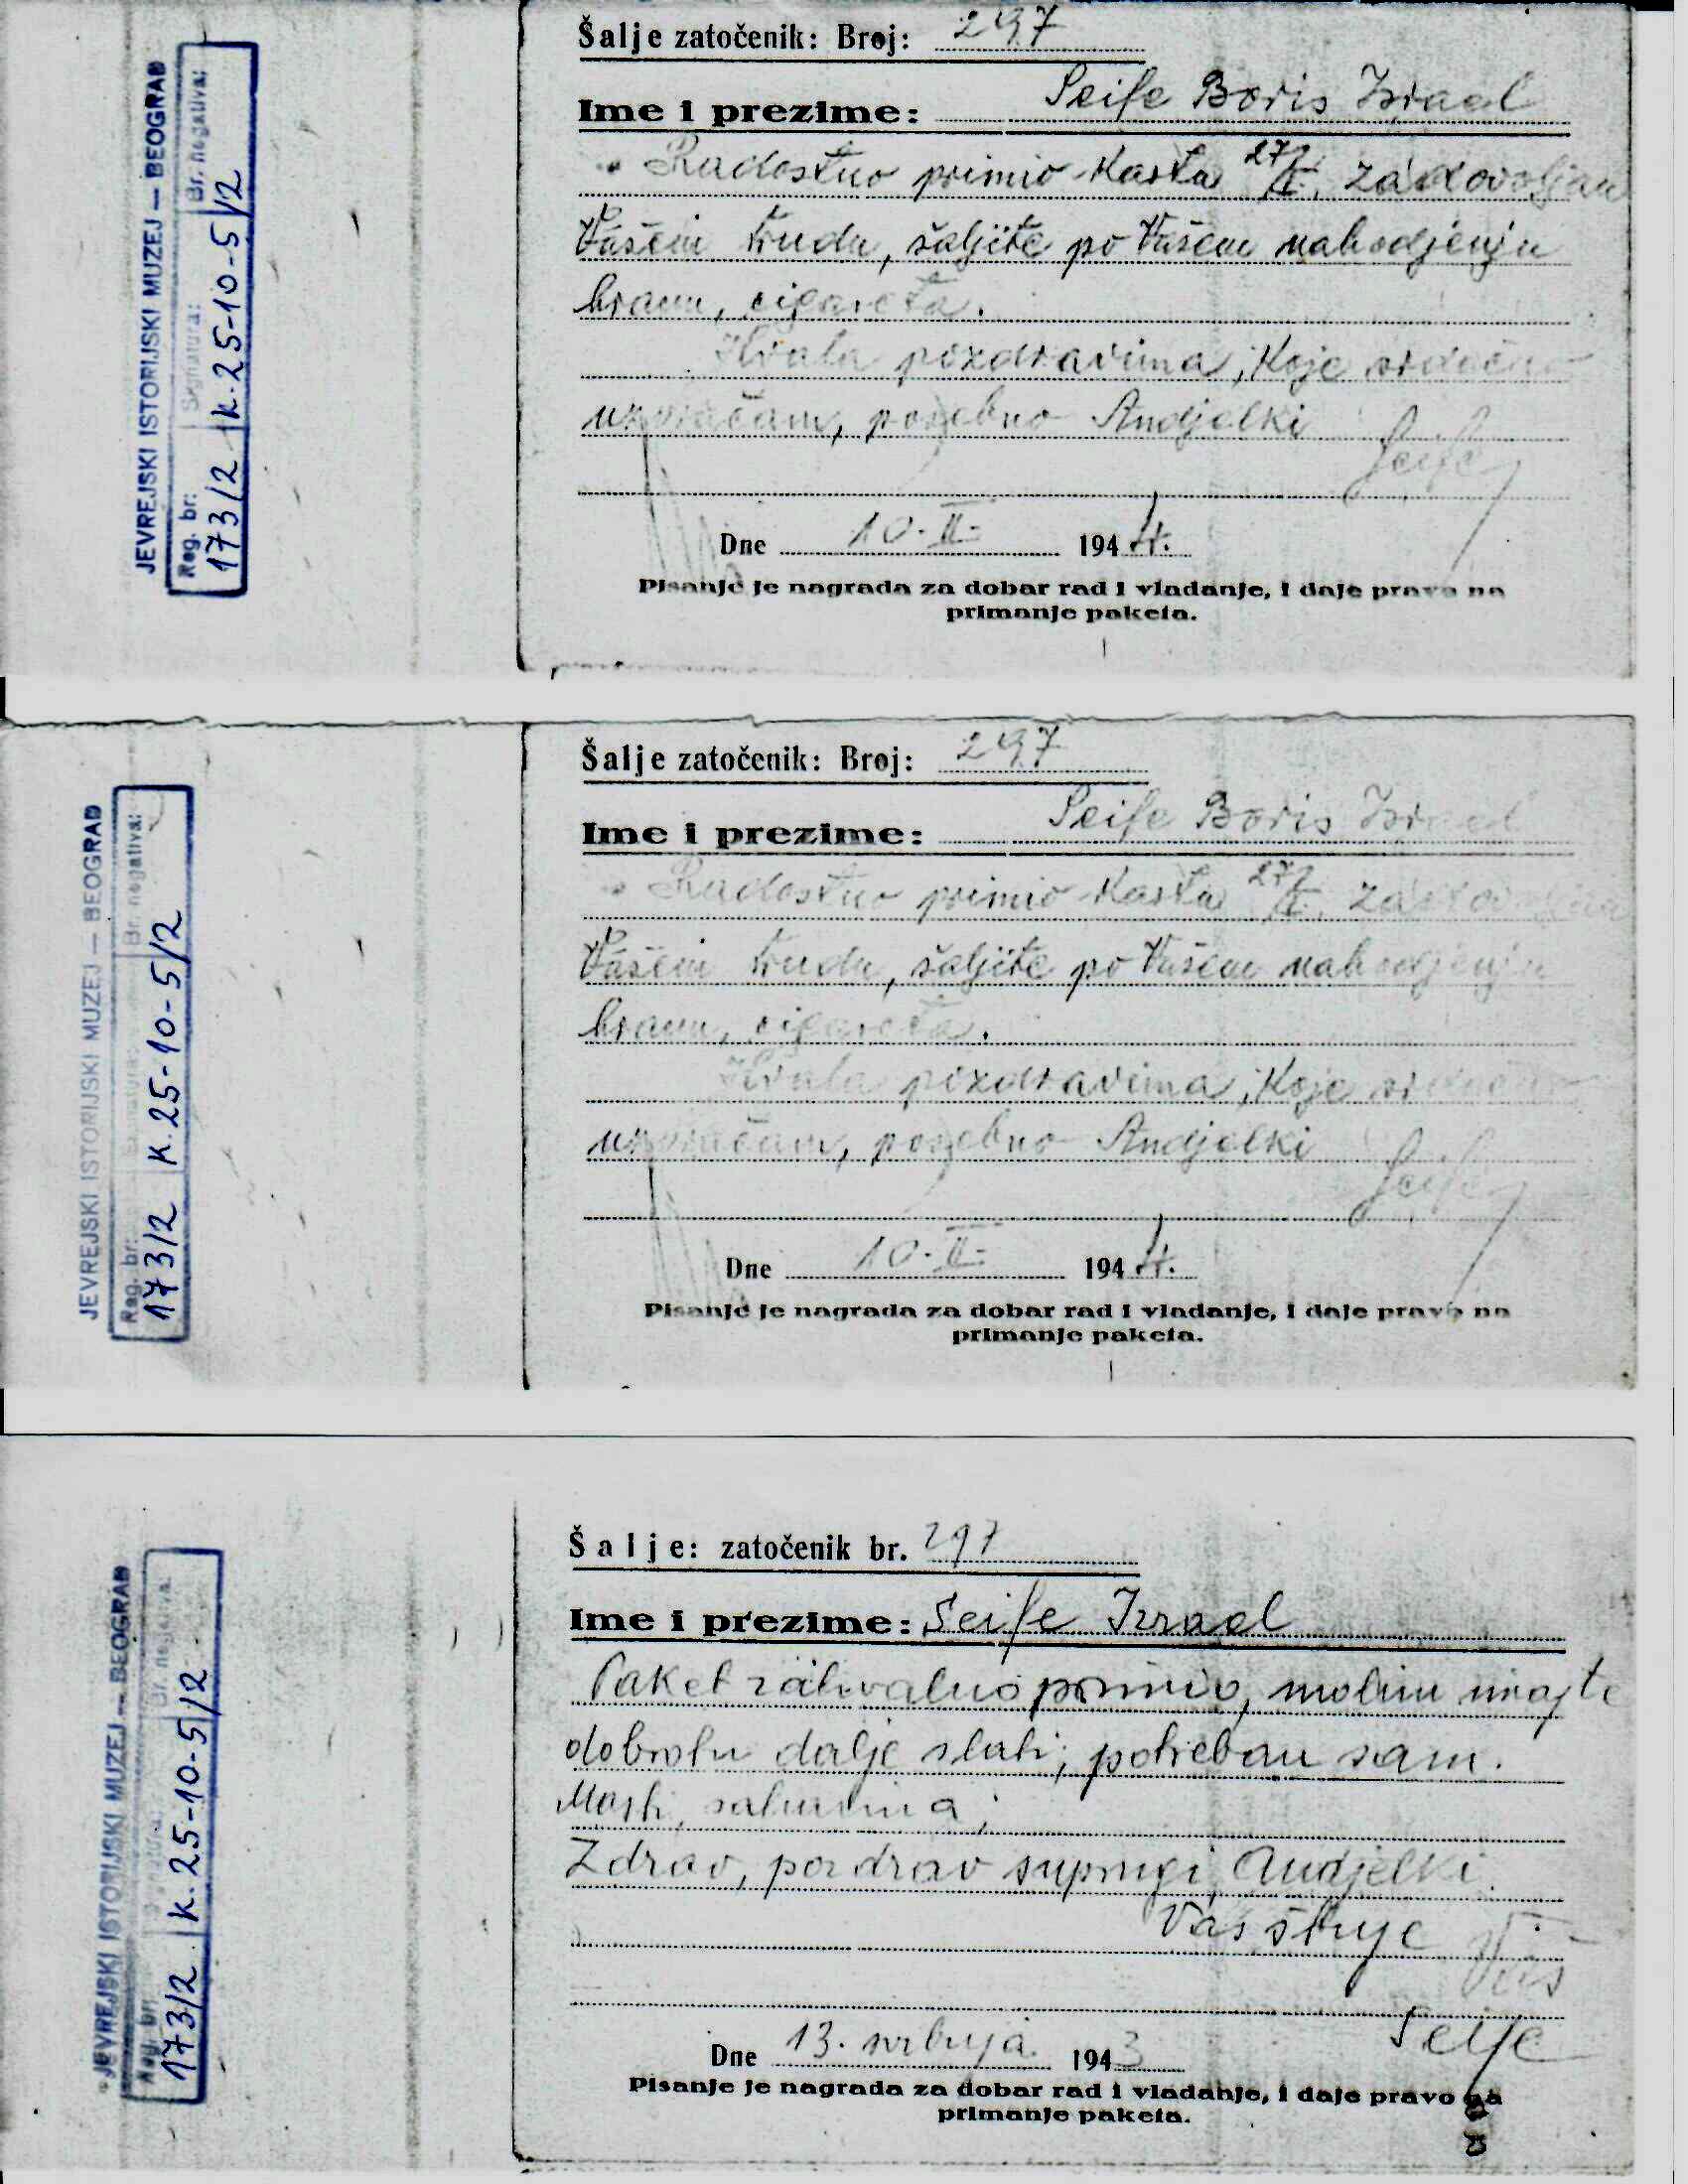 JEVREJSKI ISTORIJSKI MUZEJ — BEOGRAD
Reg. br: Signatura: Br. negativa:
173/2 K. 25-10-5/2
Šalje zatočenik: Broj: 297
Ime i prezime: Seife Boris Izrael
Radostno primio karta 27/I, zadovoljan
Vašem trudu, šaljite po Vašem nahodjenju
hranu, cigareta.
Hvala pozdravima, koje srdačno
uzvraćam, posebno Andjelki
Seife
Dne 10. II. 1944.
Pisanje je nagrada za dobar rad i vladanje, i daje pravo na
primanje paketa.
JEVREJSKI ISTORIJSKI MUZEJ — BEOGRAD
Reg. br: Signatura: Br. negativa:
173/2 K. 25-10-5/2
Šalje zatočenik: Broj: 297
Ime i prezime: Seife Boris Izrael
Radostno primio karta 27/I, zadovoljan
Vašem trudu, šaljite po Vašem nahodjenju
hranu, cigareta.
Hvala pozdravima, koje srdačno
uzvraćam, posebno Andjelki
Seife
Dne 10. II. 1944.
Pisanje je nagrada za dobar rad i vladanje, i daje pravo na
primanje paketa.
JEVREJSKI ISTORIJSKI MUZEJ — BEOGRAD
Reg. br: Br. negativa:
173/2 K. 25-10-5/2
Šalje: zatočenik br. 297
Ime i prezime: Seife Izrael
Paket zahvalno primio, molim imajte
dobrotu dalje slati, potreban sam.
Masti,
Zdrav, pozdrav suprugi, Andjelki.
Vas štuje Vaš
Seife
Dne 13. svibnja 1943
Pisanje je nagrada za dobar rad i vladanje, i daje pravo na
primanje paketa.